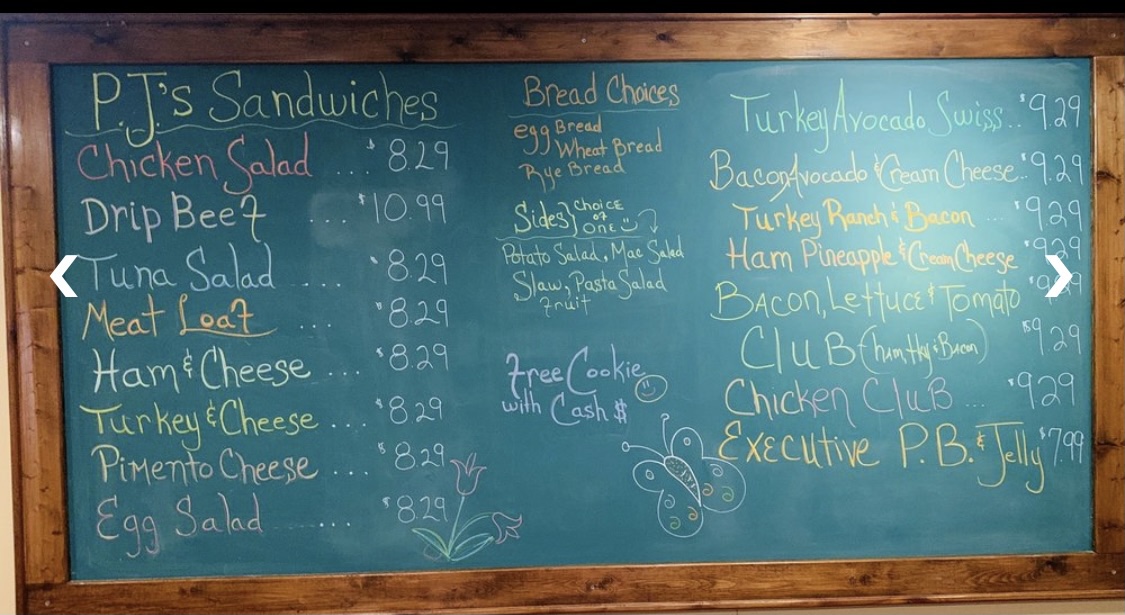 P.J.'s Sandwiches
Chicken Salad ... $8.29
Drip Beef ... $10.99
Tuna Salad .... $8.29
Meat Loaf ... $8.29
Ham & Cheese ... $8.29
Turkey & Cheese ... $8.29
Pimento Cheese .... $8.29
Egg Salad ... $8.29
Bread Choices
egg Bread
Wheat Bread
Rye Bread
Sides} Choice of one
Potato Salad, Mac Salad
Slaw, Pasta Salad
Fruit
Free Cookie
with Cash $
Turkey Avocado Swiss.. $9.29
Bacon Avocado & Cream Cheese.. $9.29
Turkey Ranch & Bacon ... $9.29
Ham Pineapple & Cream Cheese $9.29
Bacon, Lettuce & Tomato
Club (ham, tky & Bacon) $9.29
Chicken Club ... $9.29
Executive P.B. & Jelly $7.99